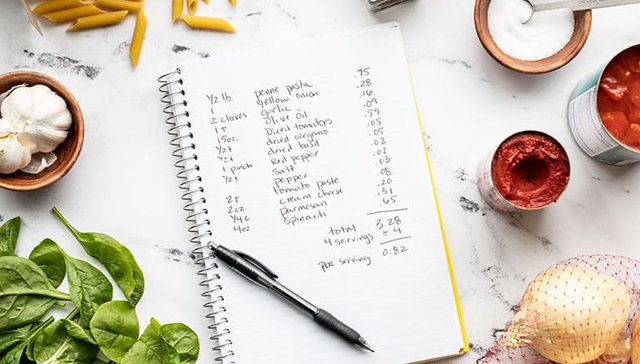 ½ lb. penne pasta .75
1 yellow onion .28
2 cloves garlic .16
1 T olive oil .09
15oz. Diced tomatoes .59
½ t dried oregano .05
½ t dried basil .05
1 pinch red pepper .02
½ t salt .02
pepper .03
2 T tomato paste .08
2 oz. cream cheese .20
¼ c parmesan .31
4oz spinach .65
total 3.28
4 servings ÷ 4
per serving 0.82